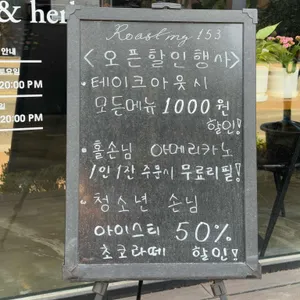 & her
안내
토요일
20:00 PM
일
20:00 PM
Roasting 153
<오픈할인행사>
• 테이크아웃시
모든메뉴 1000원
할인!
• 홀손님 아메리카노
1인 1잔 주문시 무료리필!
• 청소년 손님
아이스티 50%
초코라떼 할인!